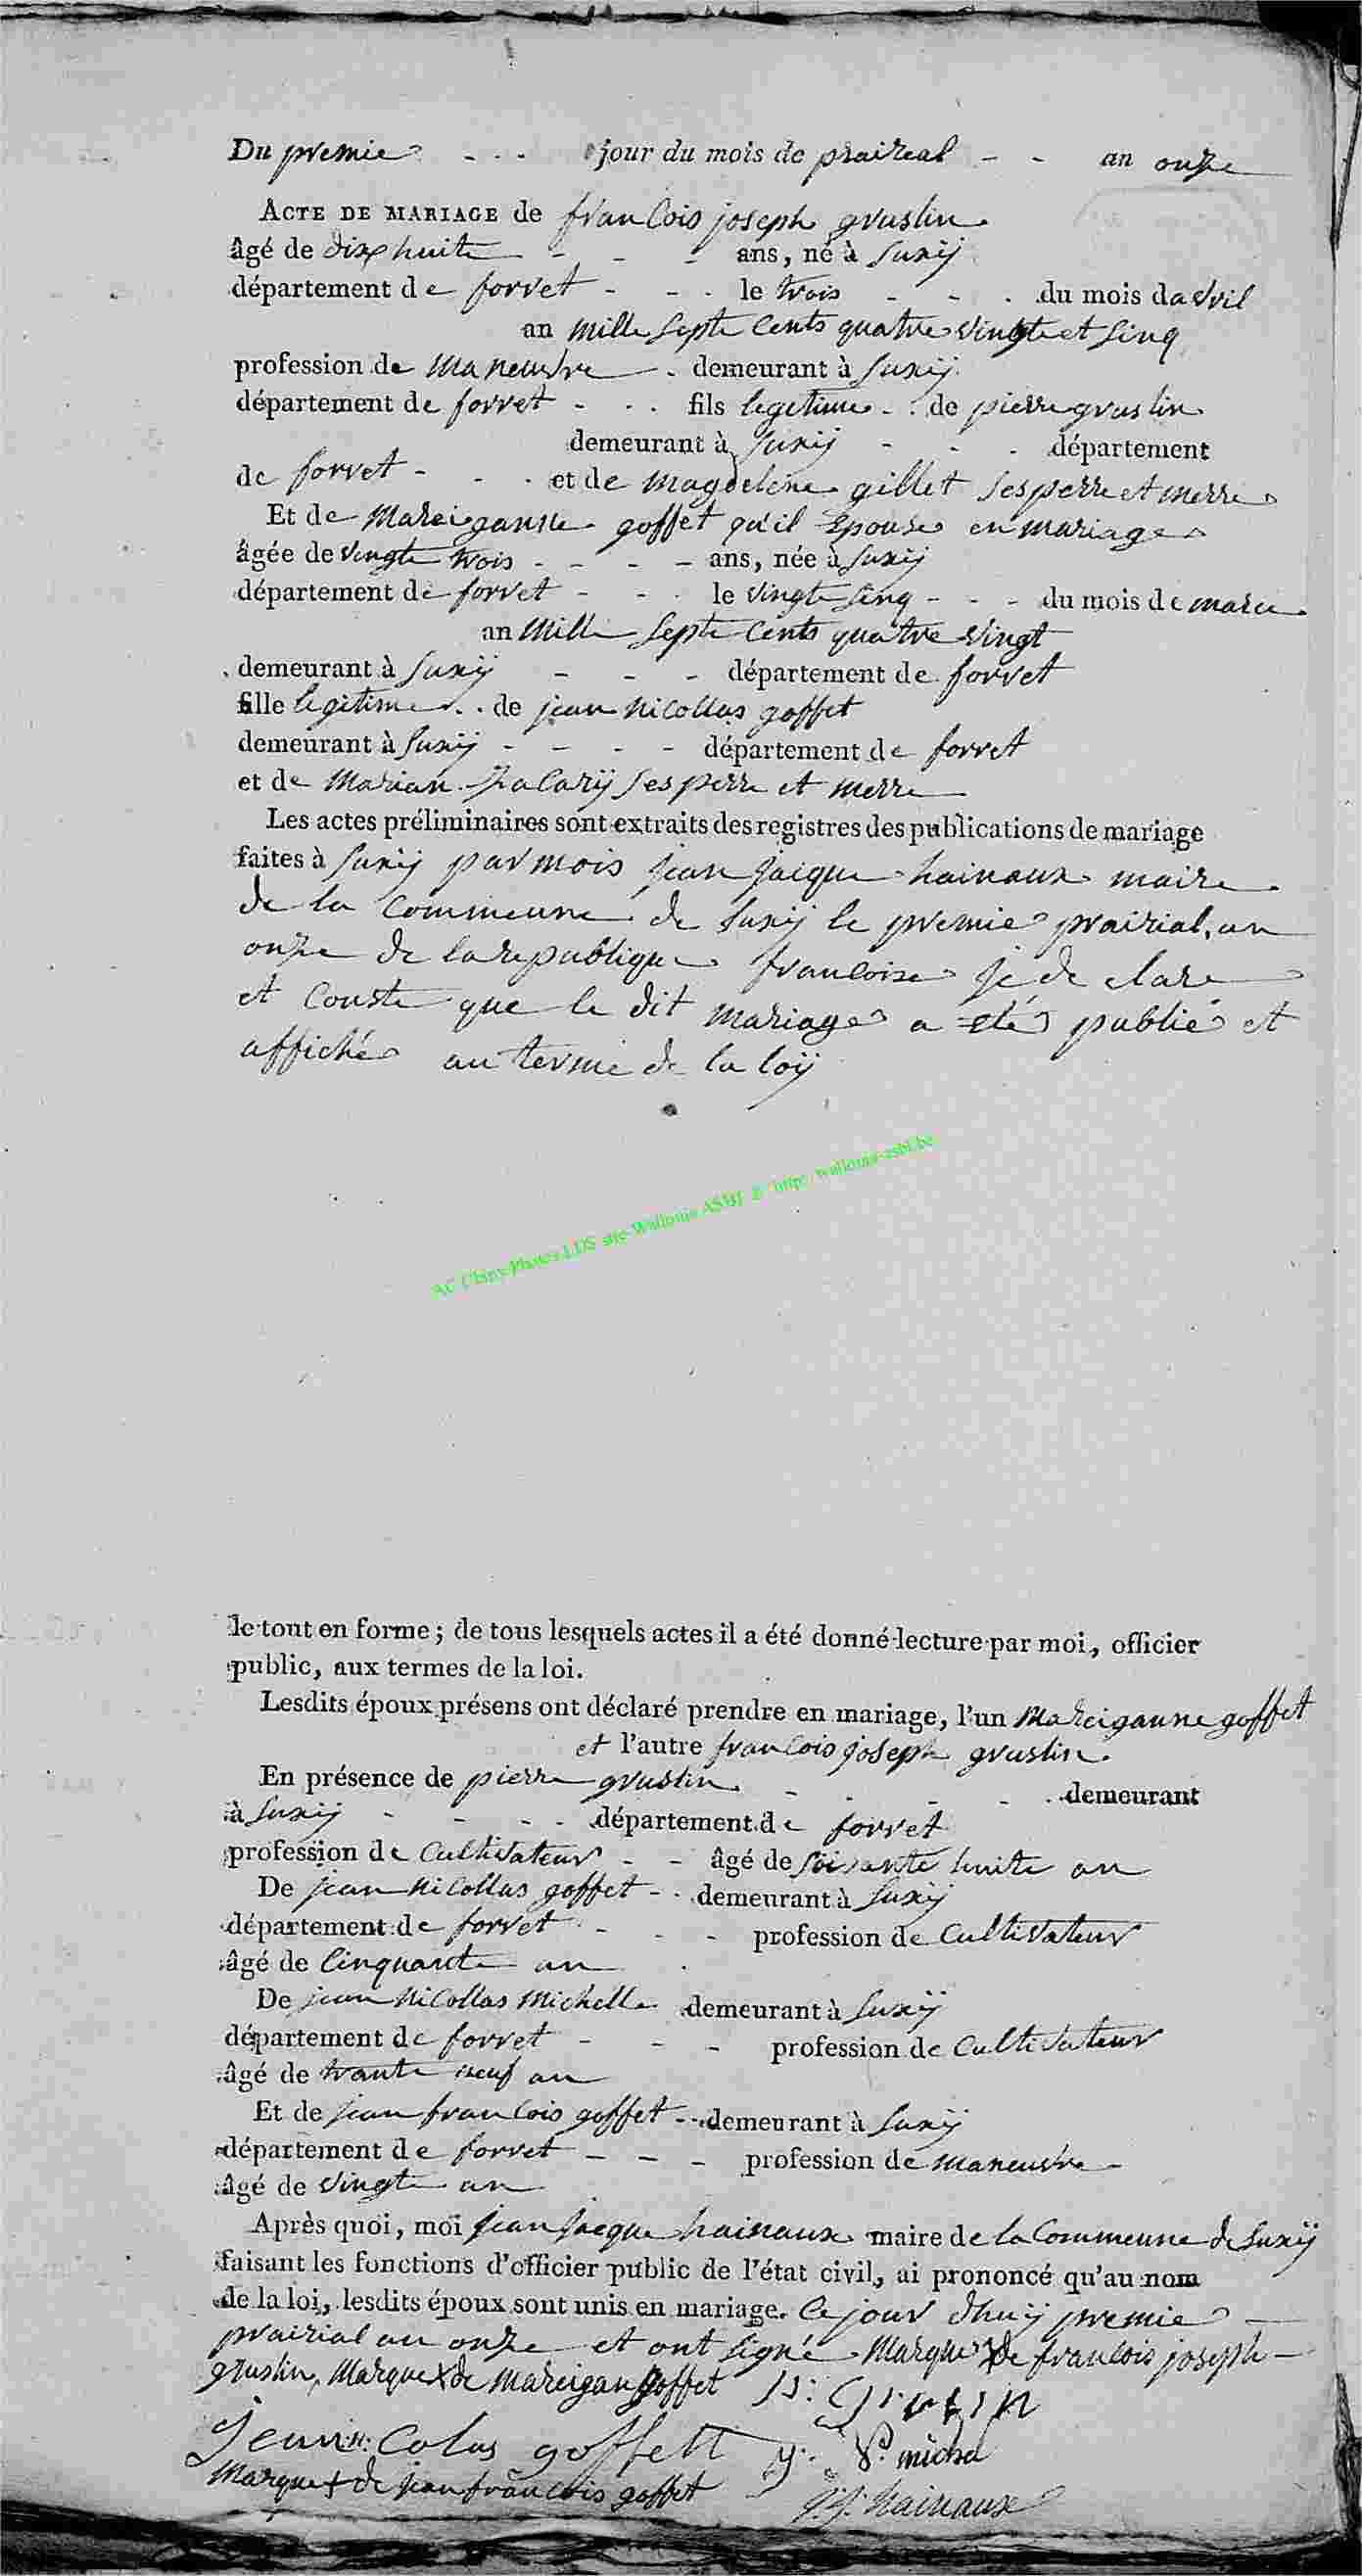 Du premie - - - jour du mois de praireal - - an onze
ACTE DE MARIAGE de francois joseph gruslin
âgé de dix huite - - - ans, né à Suxÿ
département de forret - - - le trois - - - du mois davril
an mille septe cents quatre vingte et sinq
profession de maneuvre - demeurant à Suxÿ
département de forret - - - fils legetime - - de pierre gruslin
demeurant à Suxÿ - - - département
de forret - - - et de magdeleine gillet ses perre et merre
Et de mareiganne goffet qu'il Epouse en mariage
âgée de vingte trois - - - - ans, née à Suxÿ
département de forret - - - le vingte sinq - - - du mois de marce
an mille septe cents quatre vingt
demeurant à Suxÿ - - - département de forret
fille legitime - - de jean nicollas goffet
demeurant à Suxÿ - - - - département de forret
et de marian ses perre et merre
Les actes préliminaires sont extraits des registres des publications de mariage
faites à Suxÿ par mois jean jaique hainaux maire
de la commeune de Suxÿ le premie prairial, an
onze de la republique francoise je de clare
et conste que le dit mariage a etés publié et
affiché au terme de la loÿ
AC Chiny Photos LDS site Wallonia ASBL © http: wallonia-asbl.be
le tout en forme; de tous lesquels actes il a été donné lecture par moi, officier
public, aux termes de la loi.
Lesdits époux présens ont déclaré prendre en mariage, l'un mareiganne goffet
et l'autre francois joseph gruslin
En présence de pierre gruslin - - - - demeurant
à Suxÿ - - - - département de forret
profession de cultivateur - - âgé de soisante huite an
De jean nicollas goffet - - demeurant à Suxÿ
département de forret - - - profession de cultivateur
âgé de cinquante an
De jean nicollas michelle demeurant à Suxÿ
département de forret - - - profession de cultivateur
âgé de trante neuf an
Et de jean francois goffet - - demeurant à Suxÿ
département de forret - - - profession de maneuvre -
âgé de vingte an
Après quoi, moi jean jacque hainaux maire de la commeune de Suxÿ
faisant les fonctions d'officier public de l'état civil, ai prononcé qu'au nom
de la loi, lesdits époux sont unis en mariage. Ce jour dhuÿ premie -
prairial an onze et ont signé marque X de francois joseph -
gruslin, marque X de mareigan goffet P: Gruslin
Jean n: Colas goffett y: N: michel
marque + de jean francois goffet j: j: hainaux